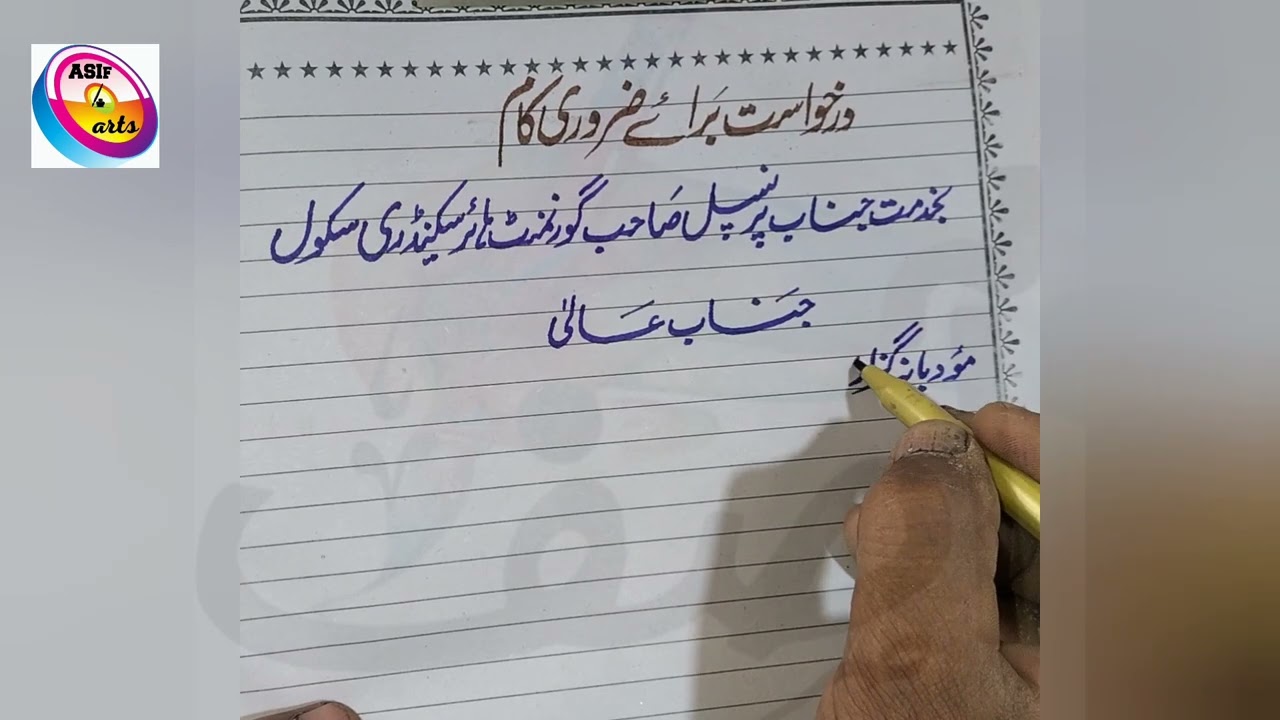 ASIF
arts
درخواست برائے ضروری کام
بخدمت جناب پرنسپل صاحب گورنمنٹ ہائر سکینڈری سکول
جناب عالیٰ
مؤدبانہ گزار